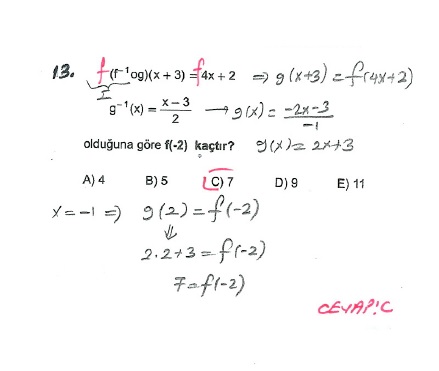 13. f(f⁻¹og)(x + 3) = f4x + 2 ⇒ g(x+3) = f(4x+2)
I
g⁻¹(x) = x − 3 / 2 → g(x) = -2x-3 / -1
olduğuna göre f(-2) kaçtır? g(x) = 2x+3
A) 4 B) 5 C) 7 D) 9 E) 11
x = -1 ⇒ g(2) = f(-2)
⇓
2.2+3 = f(-2)
7 = f(-2)
CEVAP: C